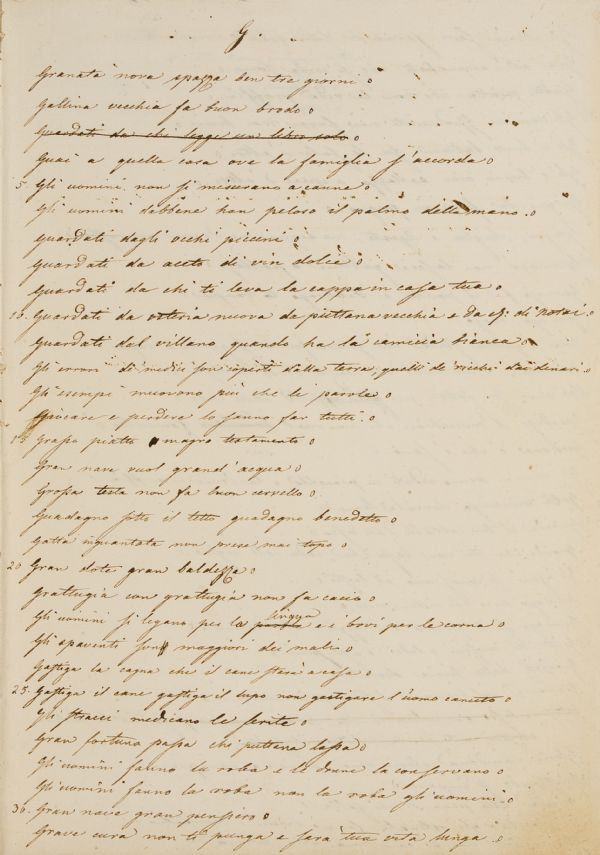 G
Granata nova spazza ben tre giorni
Gallina vecchia fa buon brodo
Guardati da chi legge un libro solo
Guai a quella casa ove la famiglia s'accorda
5. Gli uomini non si misurano a canne
Gli uomini dabbene han peloso il palmo della mano.
Guardati dagli occhi piccini
Guardati da aceto di vin dolce
Guardati da chi ti leva la cappa in casa tua
10. Guardati da osteria nuova da puttana vecchia e da di notai.
Guardati del villano quando ha la camicia bianca
Gli errori di medici son coperti dalla terra, quelli de' ricchi dai denari.
Gli esempi muovono più che le parole
Giocare e perdere lo sanno far tutti.
15 Grasso piatto magro testamento
Gran nave vuol grand'acqua
Grossa testa non fa buon cervello
Guadagno sotto il tetto guadagno benedetto
Gatta inguantata non prese mai topo
20 Gran dote gran baldezza
Grattugia con grattugia non fa cacio
Gli uomini si legano per la lingua e i bovi per le corna
Gli spaventi son maggiori dei mali
Gastiga la cagna che il cane sterà a casa
25. Gastiga il cane gastiga il lupo non gastigare l'uomo canuto
Gli stracci medicano le ferite
Gran fortuna passa chi puttana lassa
Gli uomini fanno la roba e le donne la conservano
Gli uomini fanno la roba non la roba gli uomini.
30. Gran nave gran pensiero
Grave cura non ti punga e sarà tua vita lunga